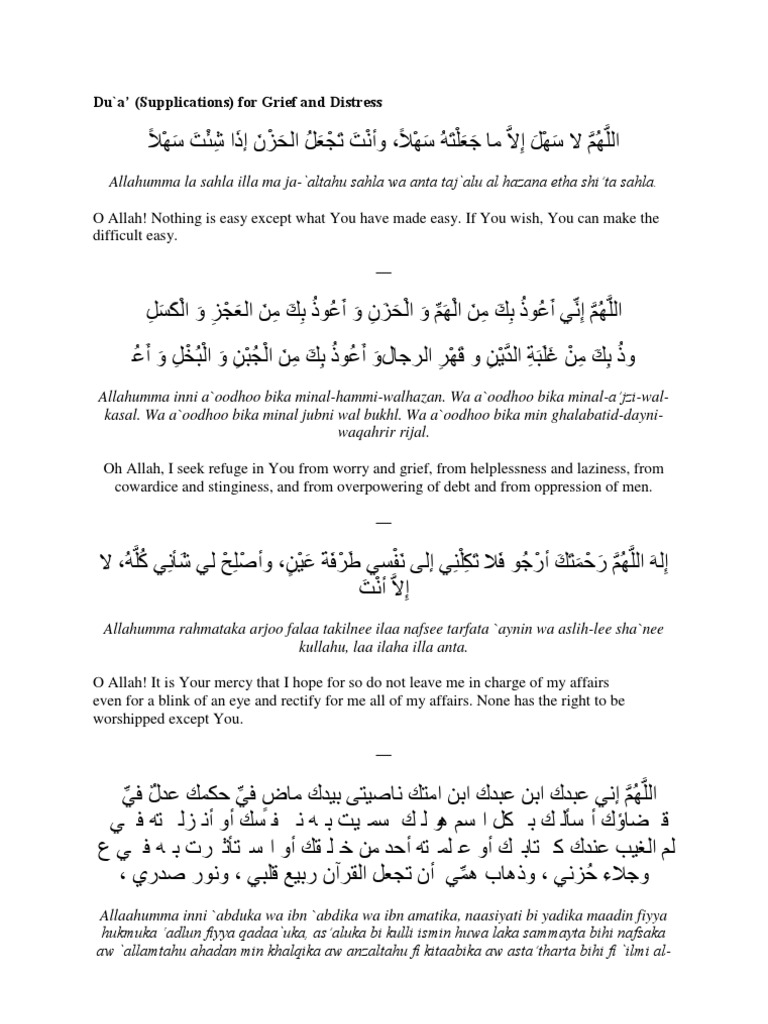 Du`a’ (Supplications) for Grief and Distress
اللَّهُمَّ لا سَهْلَ إِلاَّ ما جَعَلْتَهُ سَهْلاً، وأنْتَ تَجْعَلُ الحَزْنَ إذَا شِئْتَ سَهْلاً
Allahumma la sahla illa ma ja-`altahu sahla wa anta taj`alu al hazana etha shi’ta sahla.
O Allah! Nothing is easy except what You have made easy. If You wish, You can make the
difficult easy.
—
اللَّهُمَّ إِنِّي أَعُوذُ بِكَ مِنَ الْهَمِّ وَ الْحَزَنِ وَ أَعُوذُ بِكَ مِنَ العَجْزِ وَ الْكَسَلِ
وذُ بِكَ مِنْ غَلَبَةِ الدَّيْنِ و قَهْرِ الرجالوَ أَعُوذُ بِكَ مِنَ الْجُبْنِ وَ الْبُخْلِ وَ أَعُ
Allahumma inni a`oodhoo bika minal-hammi-walhazan. Wa a`oodhoo bika minal-a’jzi-wal-
kasal. Wa a`oodhoo bika minal jubni wal bukhl. Wa a`oodhoo bika min ghalabatid-dayni-
waqahrir rijal.
Oh Allah, I seek refuge in You from worry and grief, from helplessness and laziness, from
cowardice and stinginess, and from overpowering of debt and from oppression of men.
—
إِلهَ اللَّهُمَّ رَحْمَتَكَ أرْجُو فَلا تَكِلْنِي إلى نَفْسِي طَرْفَةَ عَيْنٍ، وأصْلِحْ لي شَأنِي كُلَّهُ، لا
إِلاَّ أنْتَ
Allahumma rahmataka arjoo falaa takilnee ilaa nafsee tarfata `aynin wa aslih-lee sha`nee
kullahu, laa ilaha illa anta.
O Allah! It is Your mercy that I hope for so do not leave me in charge of my affairs
even for a blink of an eye and rectify for me all of my affairs. None has the right to be
worshipped except You.
—
اللَّهُمَّ إني عبدك ابن عبدك ابن امتك ناصيتى بيدك ماضٍ فيِّ حكمك عدلٌ فيِّ
قضاؤك أسألك بكل اسم هو لك سميت به نفسك أو أنزلته في
لم الغيب عندك كتابك أو علمته أحد من خلقك أو استأثرت به في ع
وجلاء حُزني ، وذهاب همِّي أن تجعل القرآن ربيع قلبي ، ونور صدري ،
Allaahumma inni `abduka wa ibn `abdika wa ibn amatika, naasiyati bi yadika maadin fiyya
hukmuka ‘adlun fiyya qadaa`uka, as’aluka bi kulli ismin huwa laka sammayta bihi nafsaka
aw `allamtahu ahadan min khalqika aw anzaltahu fi kitaabika aw asta’tharta bihi fi `ilmi al-